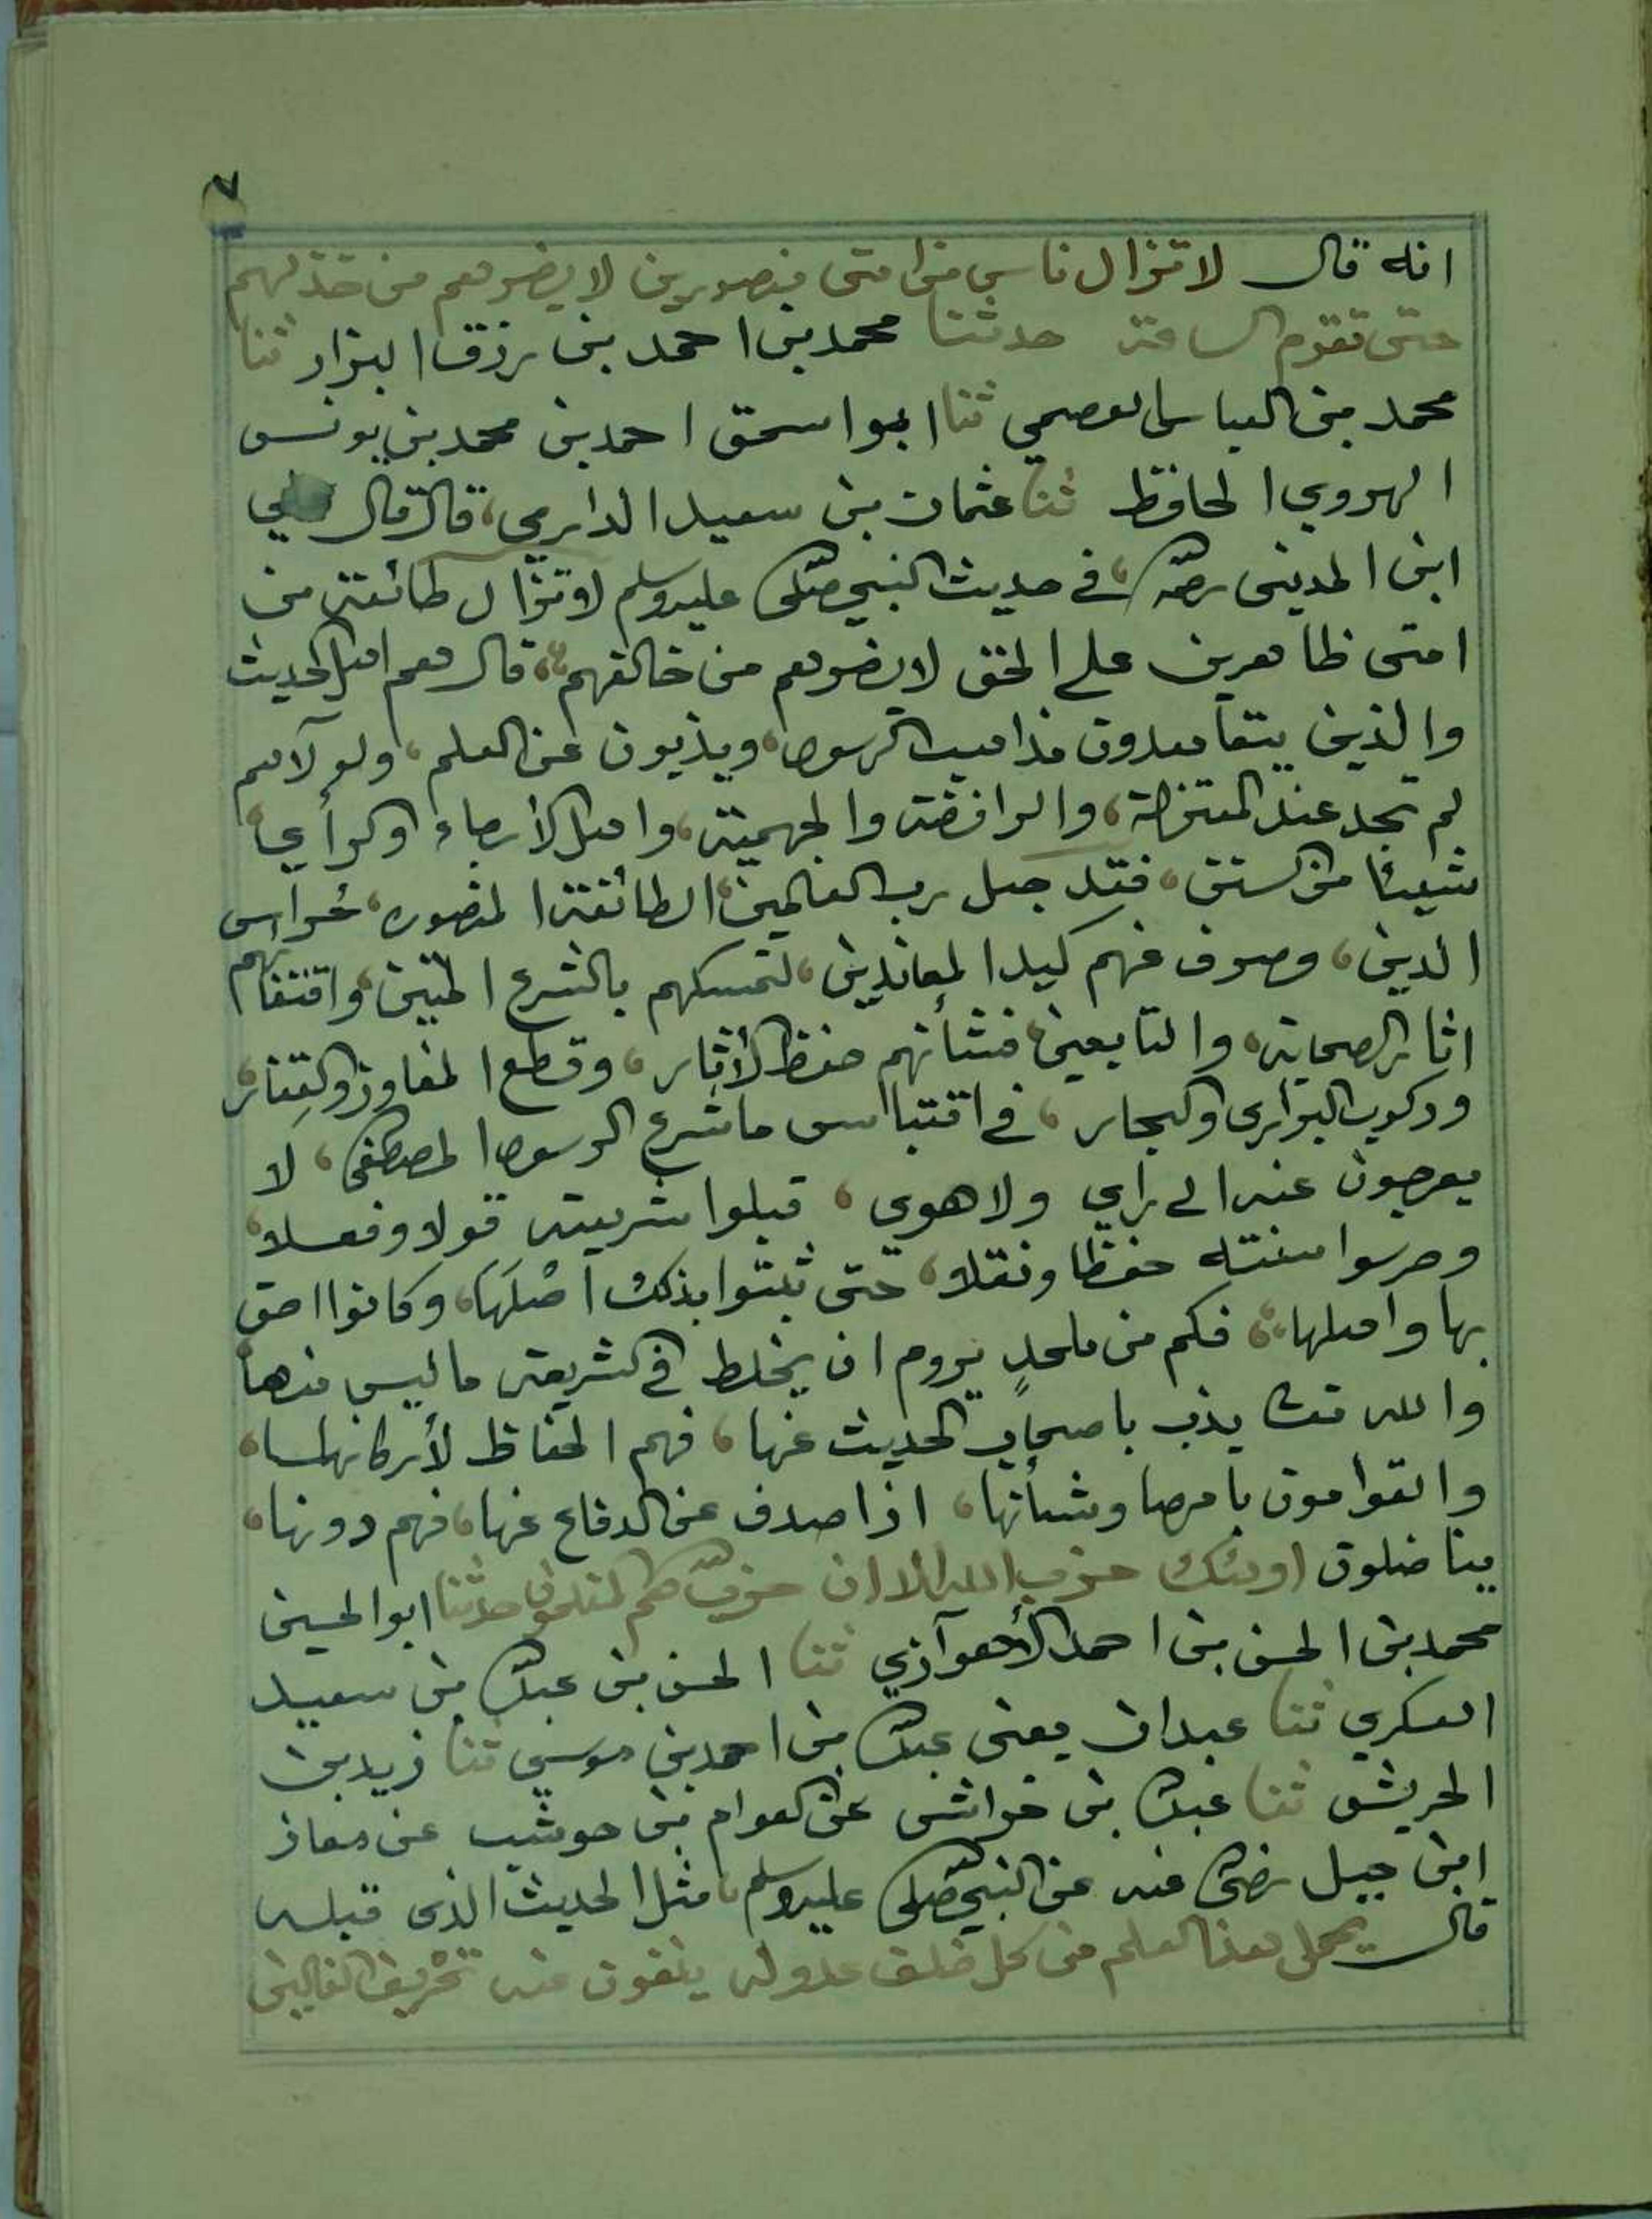 ٧
انه قال لا تزال ناس من امتى منصورين لا يضرهم من خذلهم
حتى تقوم الساعة حدثنا محمد بن احمد بن رزق البزار ثنا
محمد بن العباس العصمي ثنا ابو اسحق احمد بن محمد بن يونس
الهروي الحافظ ثنا عثمان بن سعيد الدارمي، قال قال علي
ابن المدينى رحمه الله، في حديث النبي صلى الله عليه وسلم لا تزال طائفة من
امتى ظاهرين على الحق لا يضرهم من خالفهم، قال هم اهل الحديث
والذين يتعاهدون مذاهب الرسول، ويذبون عن العلم، ولولاهم
لم تجد عند المعتزلة، والرافضة والجهمية، واهل الأرجاء والرأي،
شيئا من السنن، فقد جعل رب العالمين، الطائفة المنصوره، حراس
الدين، وصرف عنهم كيد المعاندين، لتمسكهم بالشرع المتين، واقتفائهم
اثار الصحابة، والتابعين، فشأنهم حفظ الأثار، وقطع المفاوز والقفار،
وركوب البراري والبحار، في اقتباس ما شرع الرسول المصطفى، لا
يعرجون عنه الى رأي ولا هوى، قبلوا شريعته قولا وفعلا،
وحرسوا سنته حفظا ونقلا، حتى ثبتوا بذلك اصْلَهَا، وكانوا احق
بها واهلها، فكم من ملحدٍ يروم ان يخلط في الشريعة ما ليس منها
والله تعالى يذب باصحاب الحديث عنها، فهم الحفاظ لأركانها،
والقوامون بامرها وشأنها، اذا صدف عن الدفاع عنها، فهم دونها،
يناضلون اولئك حزب الله الا ان حزب الله هم المفلحون حدثنا ابو الحسين
محمد بن الحسن بن احمد الأهوازي ثنا الحسن بن عبد الله بن سعيد
العسكري ثنا عبدان يعنى عبد الله بن احمد بن موسي ثنا زيد بن
الحريش ثنا عبد الله بن خراش عن العوام بن حوشب عن معاذ
ابن جبل رضى الله عنه عن النبي صلى الله عليه وسلم، مثل الحديث الذى قبله
قال يحمل هذا العلم من كل خلف عدوله ينفون عنه تحريف الغالين